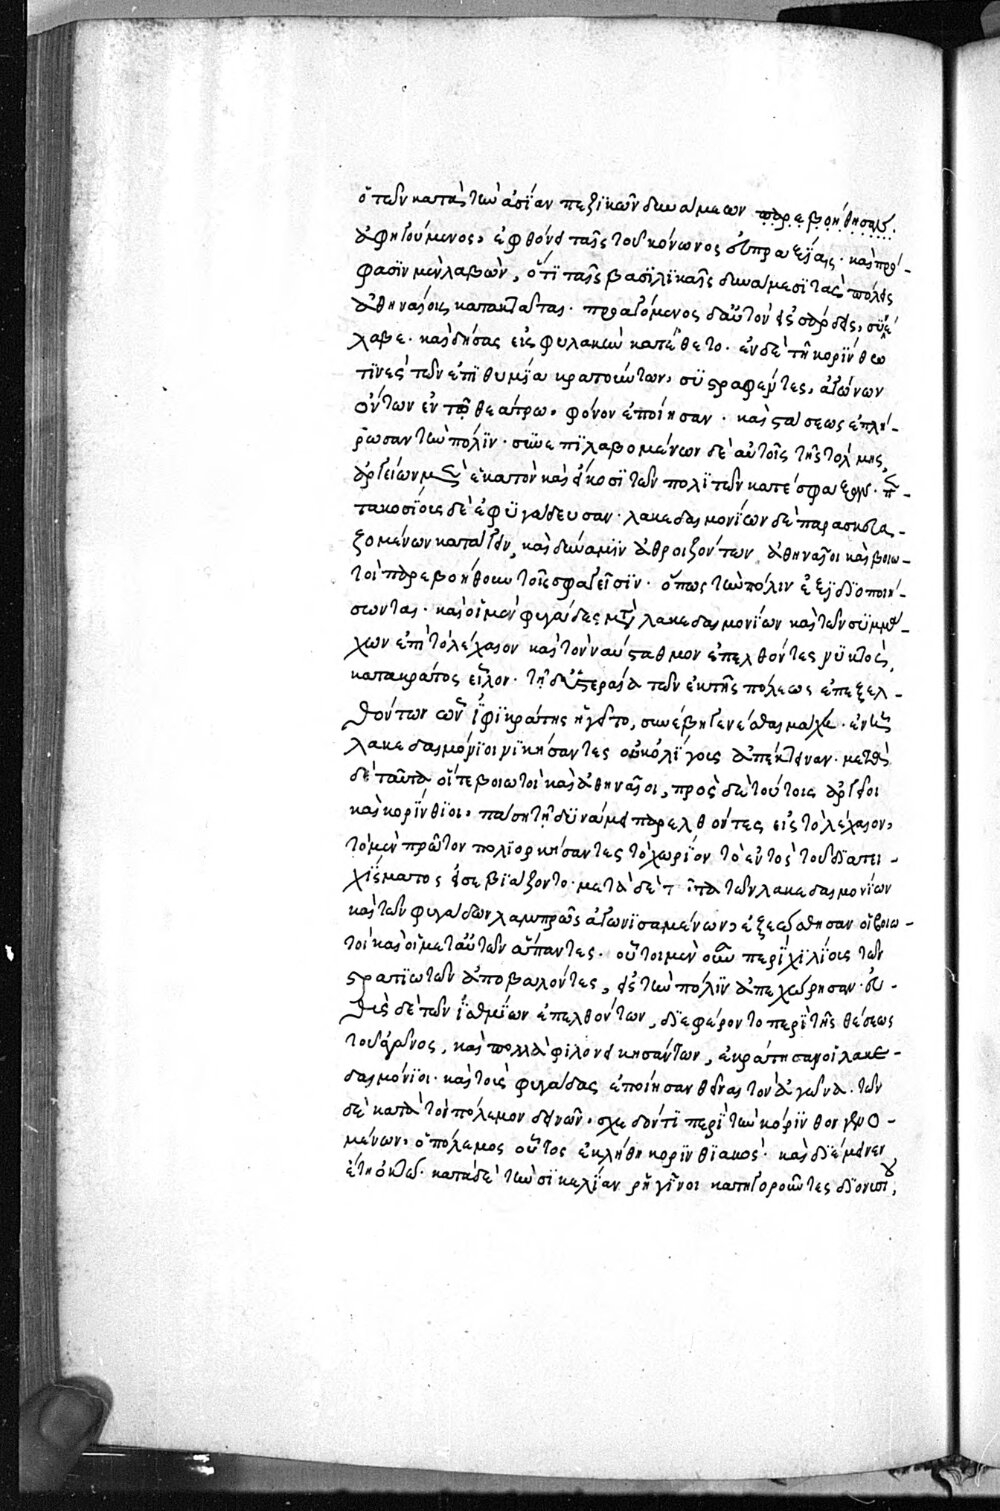 ὁ τῶν κατὰ τὴν ἀσίαν πεζϊκῶν δυνάμεων παρεβοήθησαν
ἀφηγούμενος, ἐφθόνει ταῖς τοῦ κόνωνος εὐπραξίαις· καὶ πρό-
φασϊν μὲν λαβὼν, ὅτι ταῖς βασϊλϊκαῖς δυνάμεσϊ τὰς πόλεις
ἀθηναίοις κατακτᾶται· προαγόμενος δ' αὐτὸν εἰς σάρδεις, συνέ
λαβε· καὶ δήσας εἰς φυλακὴν κατέθετο· ἐν δὲ τῆ κορίνθω
τϊνὲς τῶν ἐπϊθυμία κρατούντων, συστραφέντες, ἀγώνων
ὄντων ἐν τῶ θεάτρω, φόνον ἐποίησαν· καὶ στάσεως ἐπλή-
ρωσαν τὴν πόλϊν· συνεπϊλαβομένων δὲ αὐτοῖς τῆς τόλμης
ἀργείων μὲν ἑκατὸν καὶ εἴκοσϊ τῶν πολϊτῶν κατέσφαξαν· πεν-
τακοσίους δὲ ἐφυγάδευσαν· λακεδαιμονίων δὲ παρασκευα-
ζομένων κατάγειν, καὶ δύναμϊν ἀθροιζόντων, ἀθηναῖοι καὶ βοιω-
τοὶ παρεβοήθουν τοῖς σφαγεῖσϊν· ὅπως τὴν πόλιν ἐξϊδϊοποιή-
σωνται· καὶ οἱ μὲν φυγάδες μετὰ λακεδαιμονίων καὶ τῶν συμμά-
χων ἐπὶ τὸ λέχαιον καὶ τὸν ναύσταθμον ἐπελθόντες νυκτὸς,
κατακράτος εἷλον· τῆ δ' ὑστεραία τῶν ἐκ τῆς πόλεως ἐπεξελ-
θόντων ὧν ἰφϊκράτης ἡγεῖτο, συνέβη γενέσθαι μάχην· ἐν ἧ
λακεδαιμόνϊοι νϊκήσαντες οὐκ ὀλίγους ἀπέκτειναν· μετὰ
δὲ ταῦτα οἵ τε βοιωτοὶ καὶ ἀθηναῖοι, πρὸς δὲ τούτοις ἀργεῖοι
καὶ κορίνθϊοι, πάση τῆ δυνάμει παρελθόντες εἰς τὸ λέχαιον,
τὸ μὲν πρῶτον πολϊορκήσαντες τὸ χωρίον τὸ ἐντὸς τοῦ δϊατει-
χίσματος εἰσεβϊάζοντο· μετὰ δὲ ταῦτα τῶν λακεδαιμονίων
καὶ τῶν φυγάδων λαμπρῶς ἀγωνισαμένων, ἐξεώσθησαν οἱ βοιω-
τοὶ καὶ οἱ μετ' αὐτῶν ἅπαντες· οὗτοι μὲν οὖν περὶ χϊλίους τῶν
στρατϊωτῶν ἀποβαλόντες, εἰς τὴν πόλϊν ἀπεχώρησαν· εὐ-
θὺς δὲ τῶν ἰσθμίων ἐπελθόντων, δϊεφέροντο περὶ τῆς θέσεως
τοῦ ἀγῶνος, καὶ πολλὰ φϊλονεικησάντων, ἐκράτησαν οἱ λακε-
δαιμόνϊοι· καὶ τοὺς φυγάδας ἐποίησαν θεῖναι τὸν ἀγῶνα· τῶν
δὲ κατὰ τὸν πόλεμον δεινῶν, σχεδόν τι περὶ τὴν κόρϊνθον γενο-
μένων, ὁ πόλεμος οὗτος ἐκλήθη κορϊνθϊακός· καὶ δϊέμεινεν
ἔτη ὀκτώ· κατὰ δὲ τὴν σϊκελίαν ῥηγῖνοι κατηγοροῦντες δϊονυσίου,